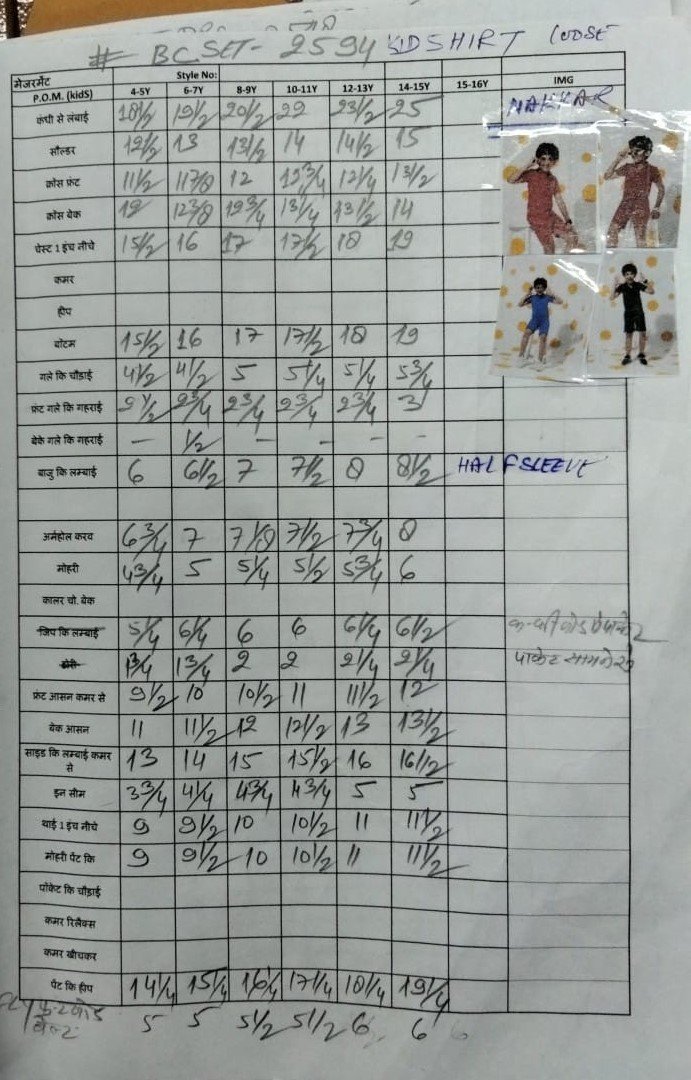 # BC SET- 2594 KID SHIRT LOOSE
मेजरमेंट Style No:
P.O.M. (kidS) 4-5Y 6-7Y 8-9Y 10-11Y 12-13Y 14-15Y 15-16Y IMG
कंधी से लंबाई 18 1/2 19 1/2 20 1/2 22 23 1/2 25 NAKKAR
सौल्डर 12 1/2 13 13 1/2 14 14 1/2 15
क्रोस फ्रंट 11 1/2 11 7/8 12 12 3/4 12 1/4 13 1/2
क्रोस बेक 12 12 3/8 12 3/4 13 1/4 13 1/2 14
चेस्ट 1 इंच नीचे 15 1/2 16 17 17 1/2 18 19
कमर
हीप
बोटम 15 1/2 16 17 17 1/2 18 19
गले कि चौड़ाई 4 1/2 4 1/2 5 5 1/4 5 1/4 5 3/4
फ्रंट गले कि गहराई 2 1/2 2 3/4 2 3/4 2 3/4 2 3/4 3
बेके गले कि गहराई - 1/2 - - - -
बाजु कि लम्बाई 6 6 1/2 7 7 1/2 8 8 1/2 HALF SLEEVE
अर्महोल करव 6 3/4 7 7 1/8 7 1/2 7 3/4 8
मोहरी 4 3/4 5 5 1/4 5 1/2 5 3/4 6
कालर चो. बेक
जिप कि लम्बाई 5 1/4 6 1/4 6 6 6 1/4 6 1/2
1 3/4 1 3/4 2 2 2 1/4 2 1/4 पाकेट सामने से
फ्रंट आसन कमर से 9 1/2 10 10 1/2 11 11 1/2 12
बेक आसन 11 11 1/2 12 12 1/2 13 13 1/2
साइड कि लम्बाई कमर
से 13 14 15 15 1/2 16 16 1/2
इन सीम 3 3/4 4 1/4 4 3/4 4 3/4 5 5
थाई 1 इंच नीचे 9 9 1/2 10 10 1/2 11 11 1/2
मोहरी पेंट कि 9 9 1/2 10 10 1/2 11 11 1/2
पोकेट कि चौड़ाई
कमर रिलैक्स
कमर खीचकर
पेंट कि हीप 14 1/4 15 1/4 16 1/4 17 1/4 18 1/4 19 1/4
5 5 5 1/2 5 1/2 6 6